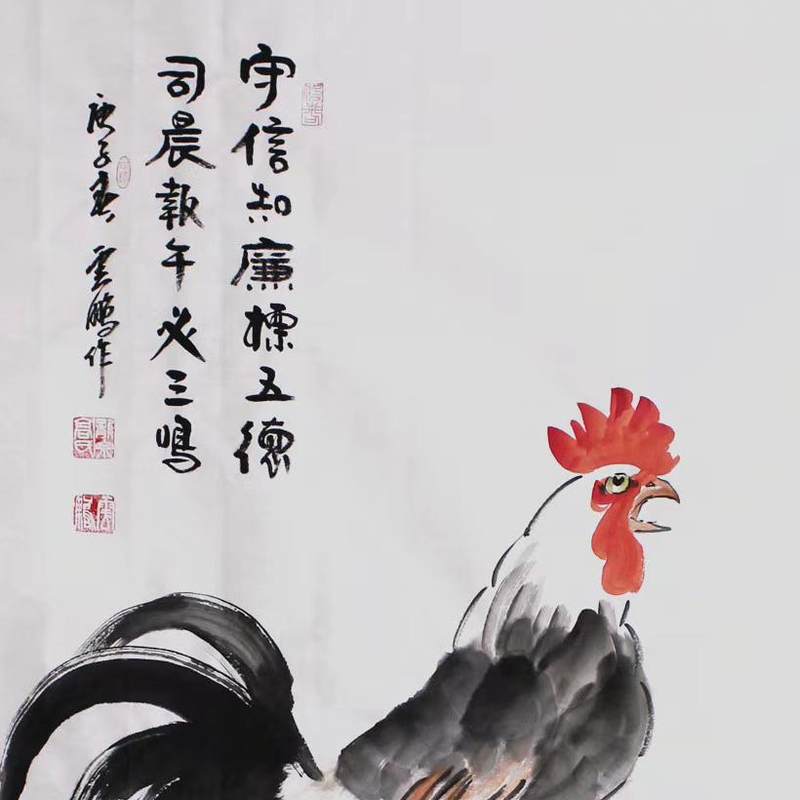 守信知廉標五德
司晨報午必三鳴
庚子春 雲鵬作